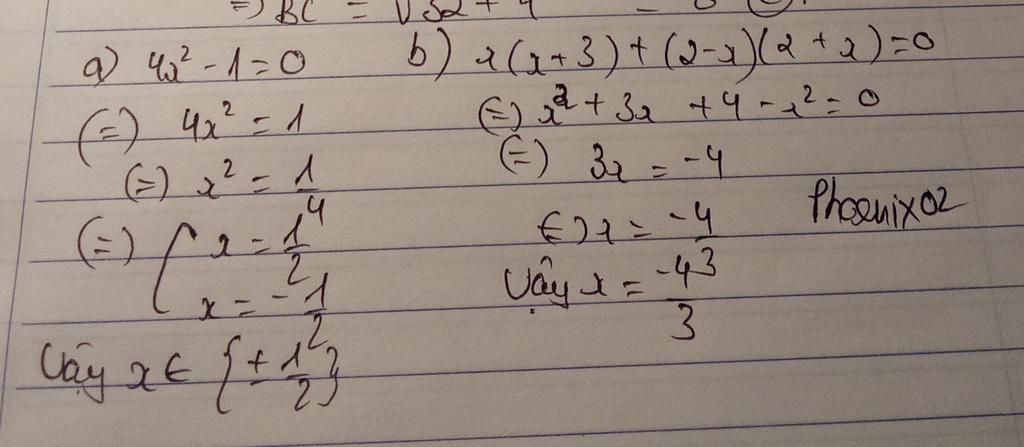 =) BC = √32+4
a) 4x² - 1 = 0
(=) 4x² = 1
(=) x² = 1/4
(=) [ x = 1/2
x = -1/2
Vậy x ∈ {± 1/2}
b) x(x+3) + (2-x)(2+x) = 0
(=) x² + 3x + 4 - x² = 0
(=) 3x = -4
(=) x = -4/3
Vậy x = -4/3
Phoenix02